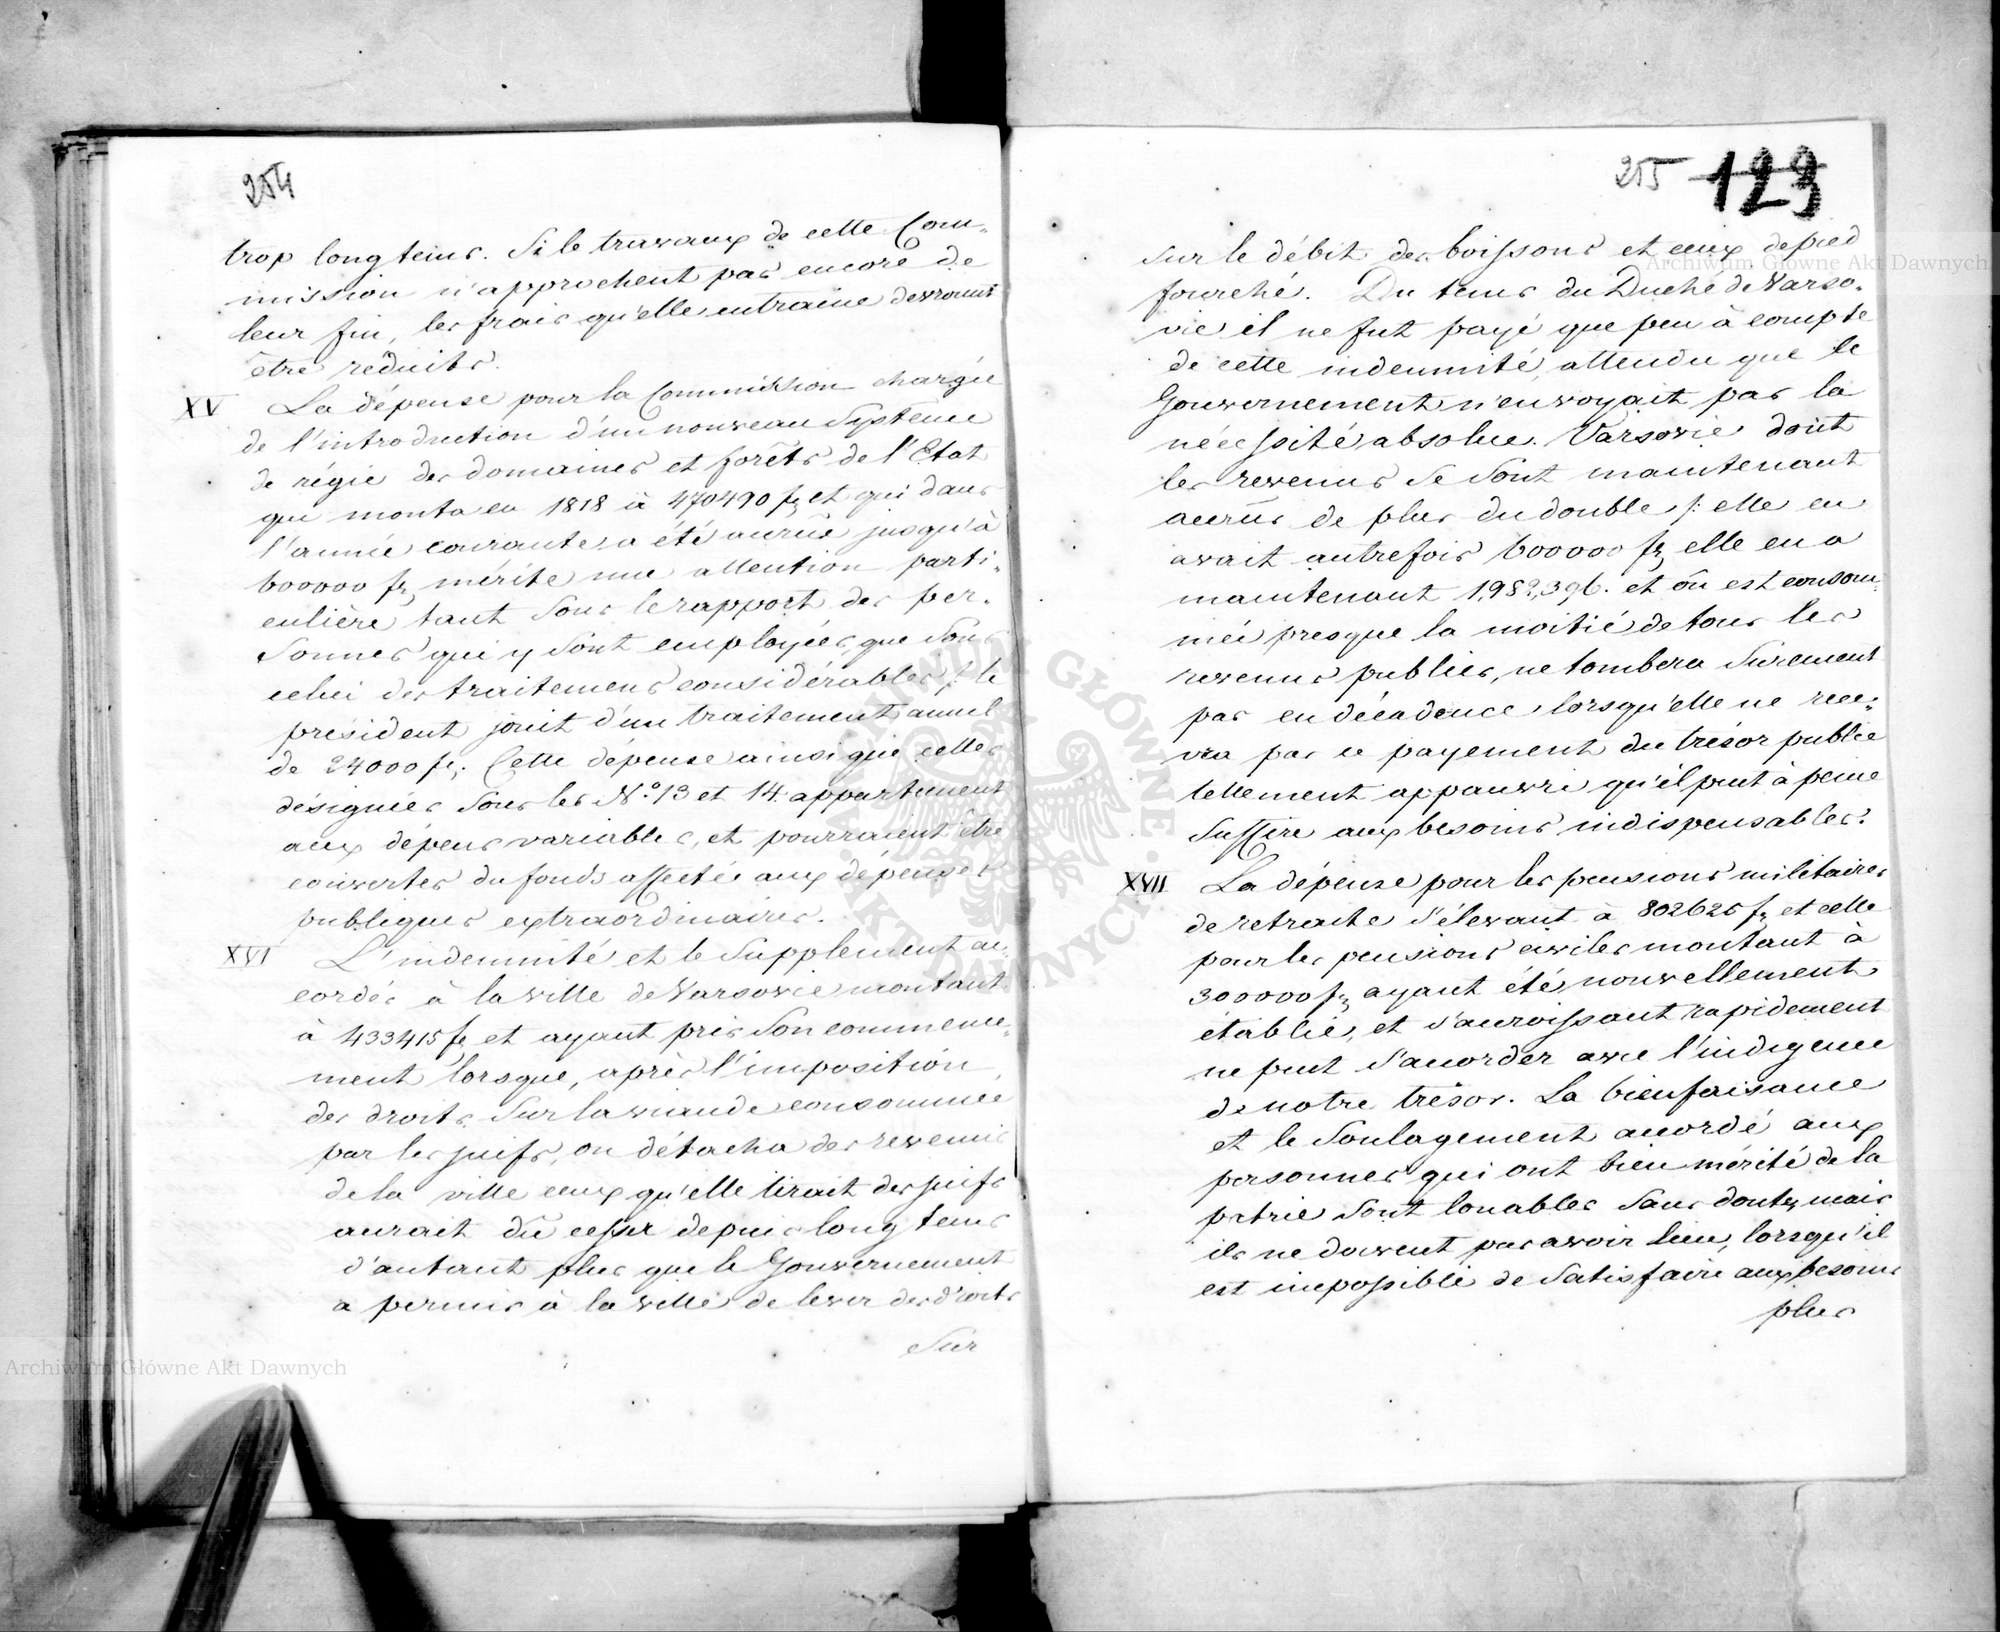 254
trop longtems. Si le travaux de cette Com-
mission n'approchent pas encore de
leur fin, les frais qu'elle entraine devront
être réduits.
XV La dépense pour la Commission chargée
de l'introduction d'un nouveau Systeme
de régie des domaines et forêts de l'Etat
qui monta en 1818 à 470490 f. et qui dans
l'année courante a été accrue jusqu'à
600000 f. mérite une attention parti-
culière tant Sous le rapport des per-
Sonnes qui y Sont employées, que Sous
celui des traitemens considérables /: le
président jouit d'un traitement annuel
de 24000 f. Cette dépense ainsi que celles
désignées Sous les No. 13 et 14. appartiennent
aux dépens variables, et pourraient être
couvertes du fonds affecté aux dépenses
publiques extraordinaires.
XVI L'indemnité et le Supplement ac-
cordés à la ville de Varsovie montant
à 433415 f. et ayant pris Son commence-
ment lorsque, après l'imposition
des droits Sur la viande consommée
par les juifs, on détacha des revenus
de la ville ceux qu'elle tirait des juifs
aurait dû cesser depuis long tems
d'autant plus que le Gouvernement
a permis à la ville de lever des droits
Sur
255 123
Sur le débit des boissons et ceux de pied
fourché. Du tems du Duché de Varso-
vie il ne fut payé que peu à compte
de cette indemnité, attendu que le
Gouvernement n'en voyait pas la
nécessité absolue. Varsovie dont
les revenus Se Sont maintenant
accrûs de plus du double /: elle en
avait autrefois 600000 f. elle en a
maintenant 1,982,396. et où est consom-
mée presque la moitié de tous les
revenus publics, ne tombera Surement
pas en décadence lorsqu'elle ne rece-
vra pas ce payement du trésor public
tellement appauvri qu'il peut à peine
Suffire aux besoins indispensables.
XVII La dépense pour les pensions militaires
de retraite S'élevant à 802625 f. et celle
pour les pensions civiles montant à
300000 f. ayant été nouvellement
établie, et S'accroissant rapidement
ne peut S'accorder avec l'indigence
de notre trésor. La bienfaisance
et le Soulagement accordé aux
personnes qui ont bien mérité de la
patrie Sont louables Sans doute, mais
ils ne doivent pas avoir lieu, lorsqu'il
est impossible de Satisfaire aux besoins
plus
Archiwum Główne Akt Dawnych
Archiwum Główne Akt Dawnych
ARCHIWUM GŁÓWNE AKT DAWNYCH